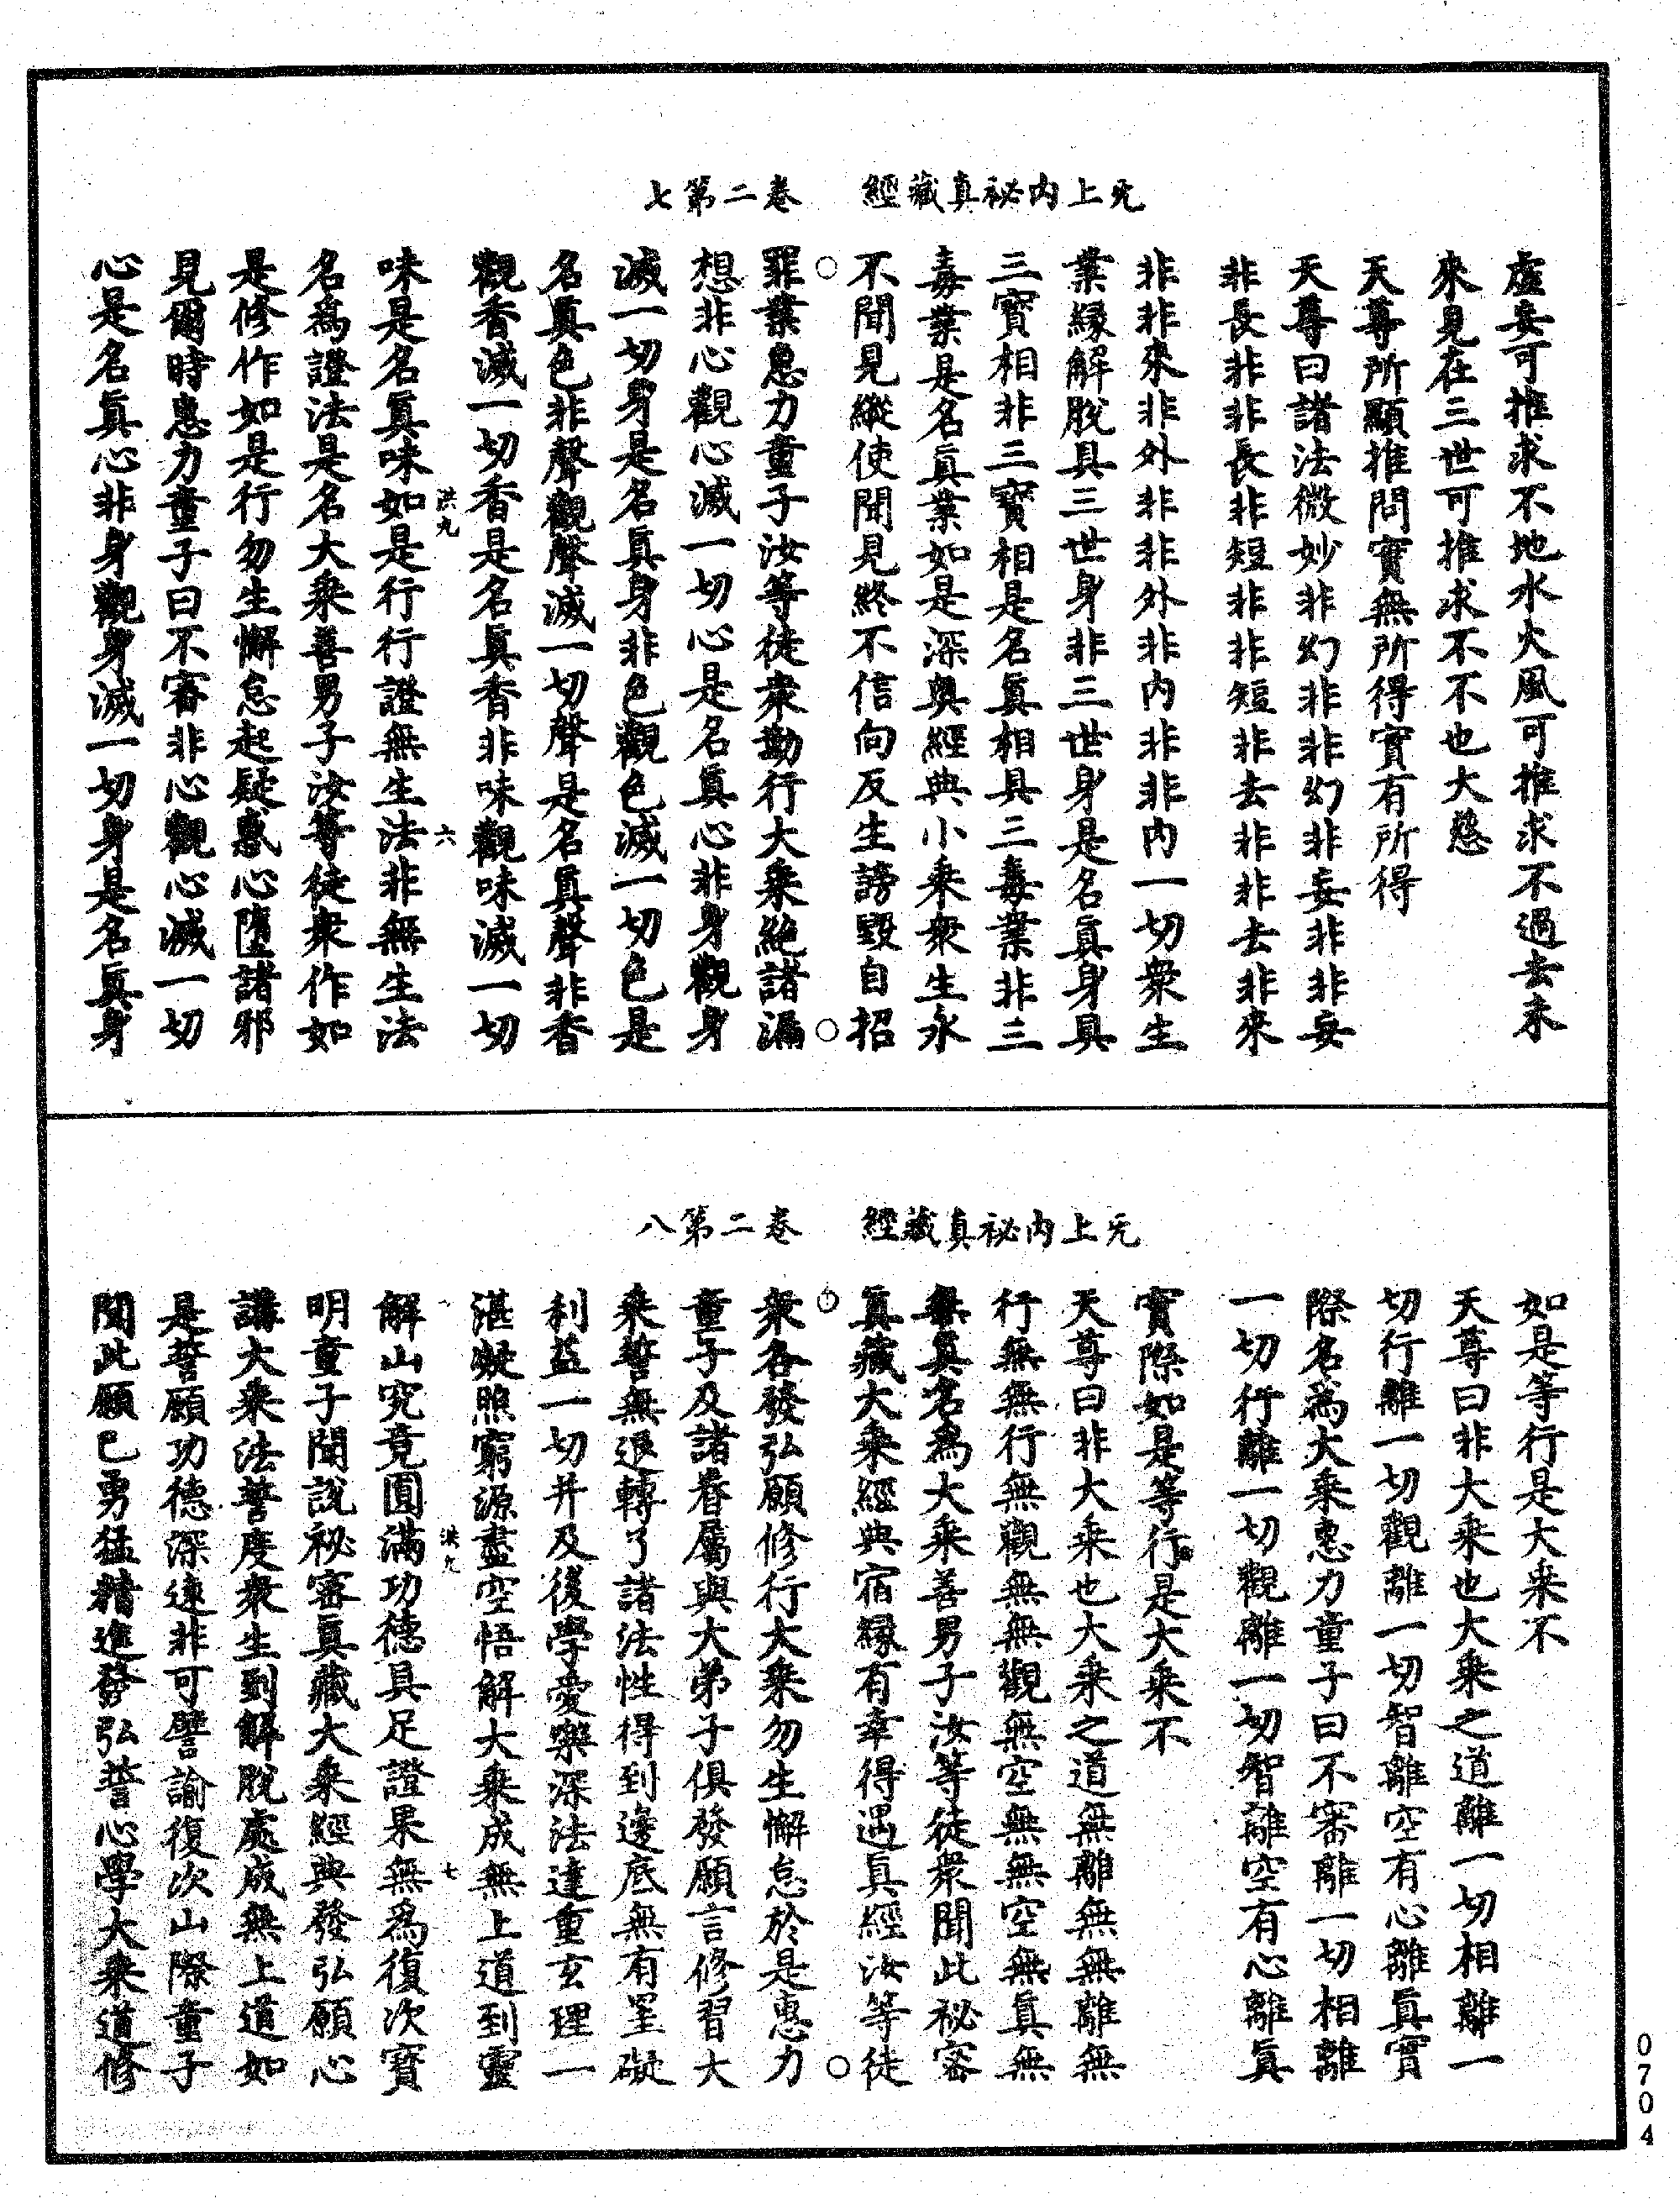 无上内祕真藏經　卷二第七
虛妄可推求不地水火風可推求不過去未
來見在三世可推求不不也大慈
天尊所顯推問實無所得實有所得
天尊曰諸法微妙非幻非非幻非妄非非妄
非長非非長非短非非短非去非非去非來
非非來非外非非外非内非非内一切衆生
業縁解脫具三世身非三世身是名眞身具
三寶相非三寶相是名眞相具三毒業非三
毒業是名眞業如是深奥經典小乘衆生永
不聞見縱使聞見終不信向反生謗毀自招
罪業惠力童子汝等徒衆勤行大乘絶諸漏
想非心觀心滅一切心是名眞心非身觀身
滅一切身是名眞身非色觀色滅一切色是
名眞色非聲觀聲滅一切聲是名眞聲非香
觀香滅一切香是名眞香非味觀味滅一切
洪九　六
味是名眞味如是行行證無生法非無生法
名爲證法是名大乘善男子汝等徒衆作如
是修作如是行勿生懈怠起疑惑心墮諸邪
見爾時惠力童子曰不審非心觀心滅一切
心是名眞心非身觀身滅一切身是名眞身
无上内祕真藏經　卷二第八
如是等行是大乘不
天尊曰非大乘也大乘之道離一切相離一
切行離一切觀離一切智離空有心離眞實
際名爲大乘惠力童子曰不審離一切相離
一切行離一切觀離一切智離空有心離眞
實際如是等行是大乘不
天尊曰非大乘也大乘之道無離無無離無
行無無行無觀無無觀無空無無空無眞無
無眞名爲大乘善男子汝等徒衆聞此祕密
眞藏大乘經典宿縁有幸得遇眞經汝等徒
衆各發弘願修行大乘勿生懈怠於是惠力
童子及諸眷屬與大弟子俱發願言修習大
乘誓無退轉了諸法性得到邊底無有罣礙
利益一切并及後學愛樂深法達重玄理一
湛凝照窮源盡空悟解大乘成無上道到靈
洪九　七
解山究竟圓滿功德具足證果無爲復次寳
明童子聞說祕密眞藏大乘經典發弘願心
講大乘法誓度衆生到解脫處成無上道如
是誓願功德深遠非可譬諭復次山際童子
聞此願已勇猛精進發弘誓心學大乘道修
0704